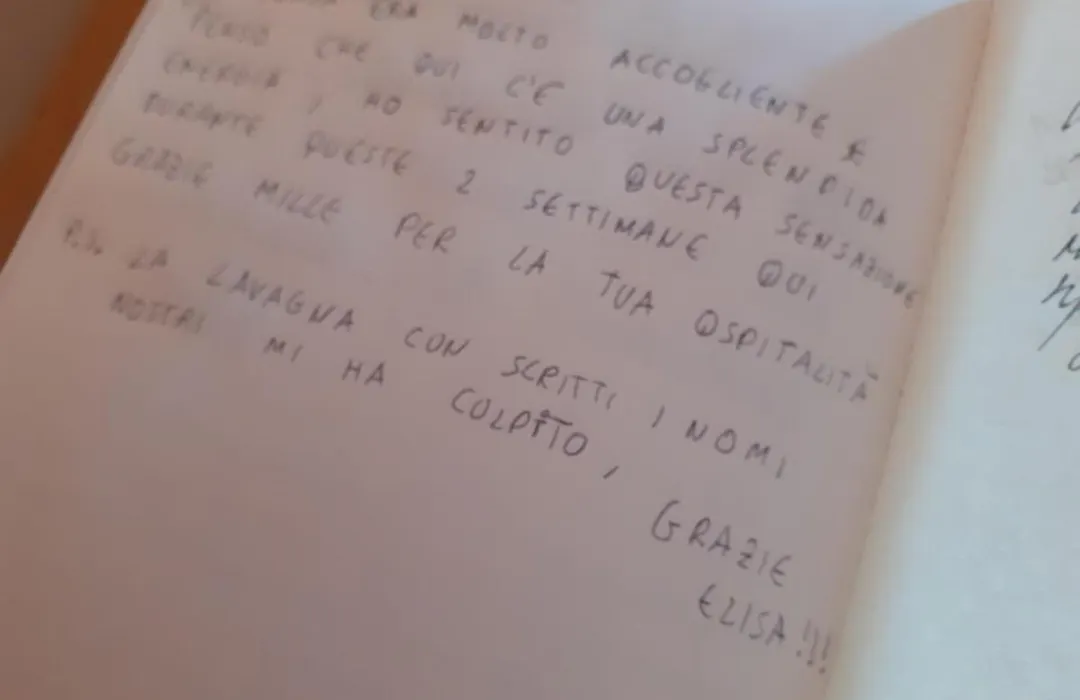 ERA MOLTO ACCOGLIENTE E
PENSO CHE QUI C'È UNA SPLENDIDA
ENERGIA, HO SENTITO QUESTA SENSAZIONE
DURANTE QUESTE 2 SETTIMANE QUI
GRAZIE MILLE PER LA TUA OSPITALITÀ
P.S. LA LAVAGNA CON SCRITTI I NOMI
NOSTRI MI HA COLPITO,
GRAZIE
ELISA!!!